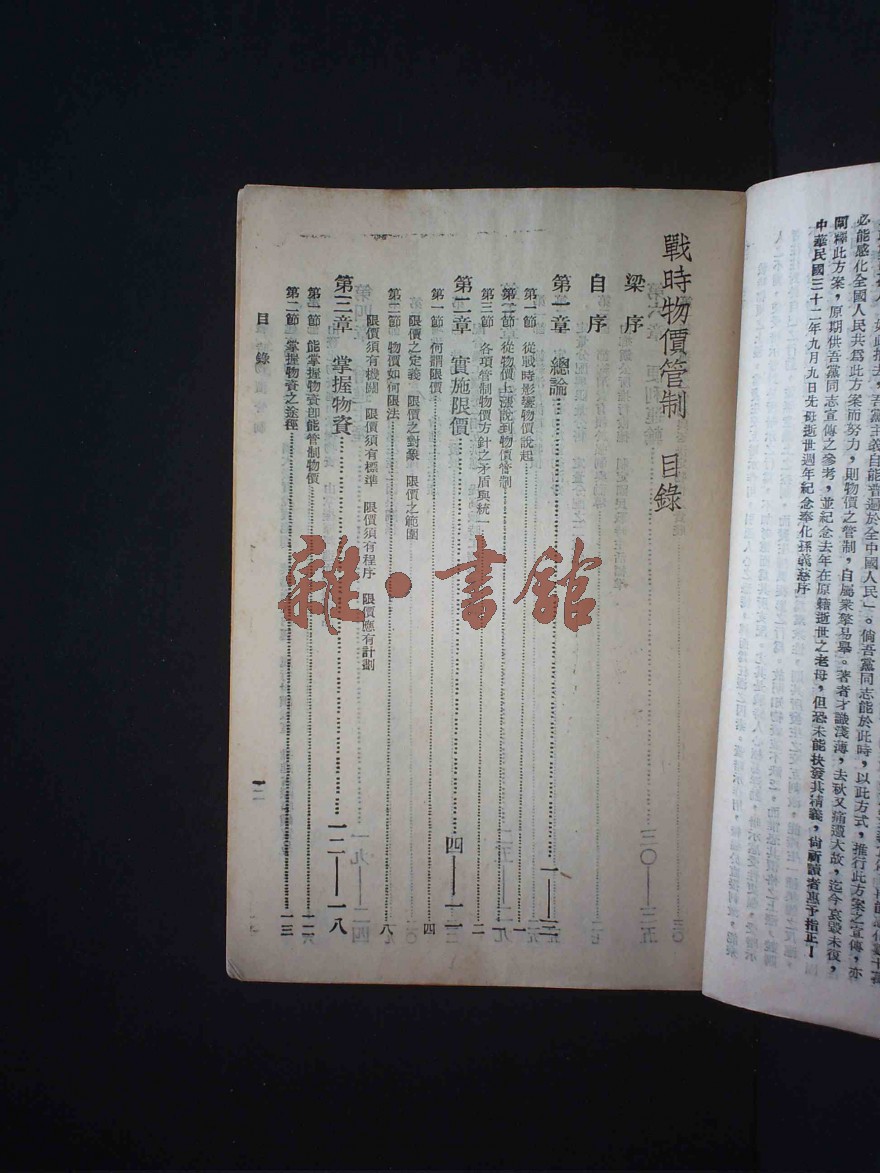 必能感化全國人民共為此方案而努力，則物價之管制，自屬衆擎易舉。著者才識淺薄，去秋又痛遭大故，迄今哀毀未復，
闡釋此方案，原期供吾黨同志宣傳之參考，並紀念去年在原籍逝世之老母，但恐未能抉發其精義，尙祈讀者惠予指正！
中華民國三十二年九月九日先母逝世週年紀念奉化孫義慈序
戰時物價管制 目錄
梁序
自序
第一章 總論 一——三
第一節 從戰時影響物價說起 一
第二節 從物價上漲說到物價管制
第三節 各項管制物價方針之矛盾與統一 二
第二章 實施限價 四——一一
第一節 何謂限價 四
限價之定義 限價之對象 限價之範圍
第二節 物價如何限法 八
限價須有機關 限價須有標準 限價須有程序 限價應有計劃
第三章 掌握物資 一二——一八
第一節 能掌握物資卽能管制物價 一二
第二節 掌握物資之途徑 一三
目錄
一
雜·書館